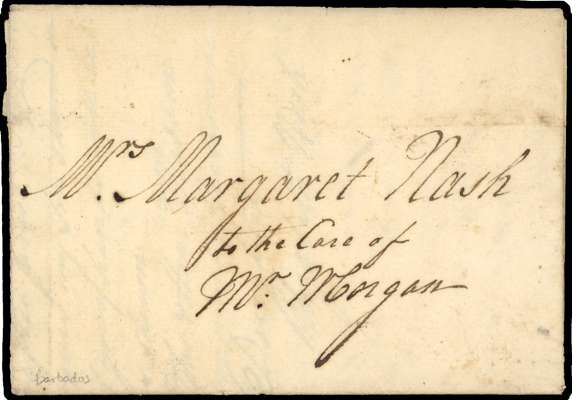 Mrs. Margaret Nash
to the Care of
Mr. Morgan
barbados